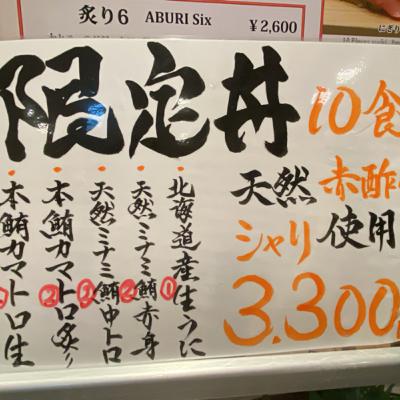 炙り6 ABURI Six
¥2,600
にぎり
限定丼 10食
天然 赤酢の
シャリ 使用
3,300
・北海道産生うに ①
・天然ミナミ鮪赤身 ②
・天然ミナミ鮪中トロ ②
・本鮪カマトロ炙り ②
・本鮪カマトロ生